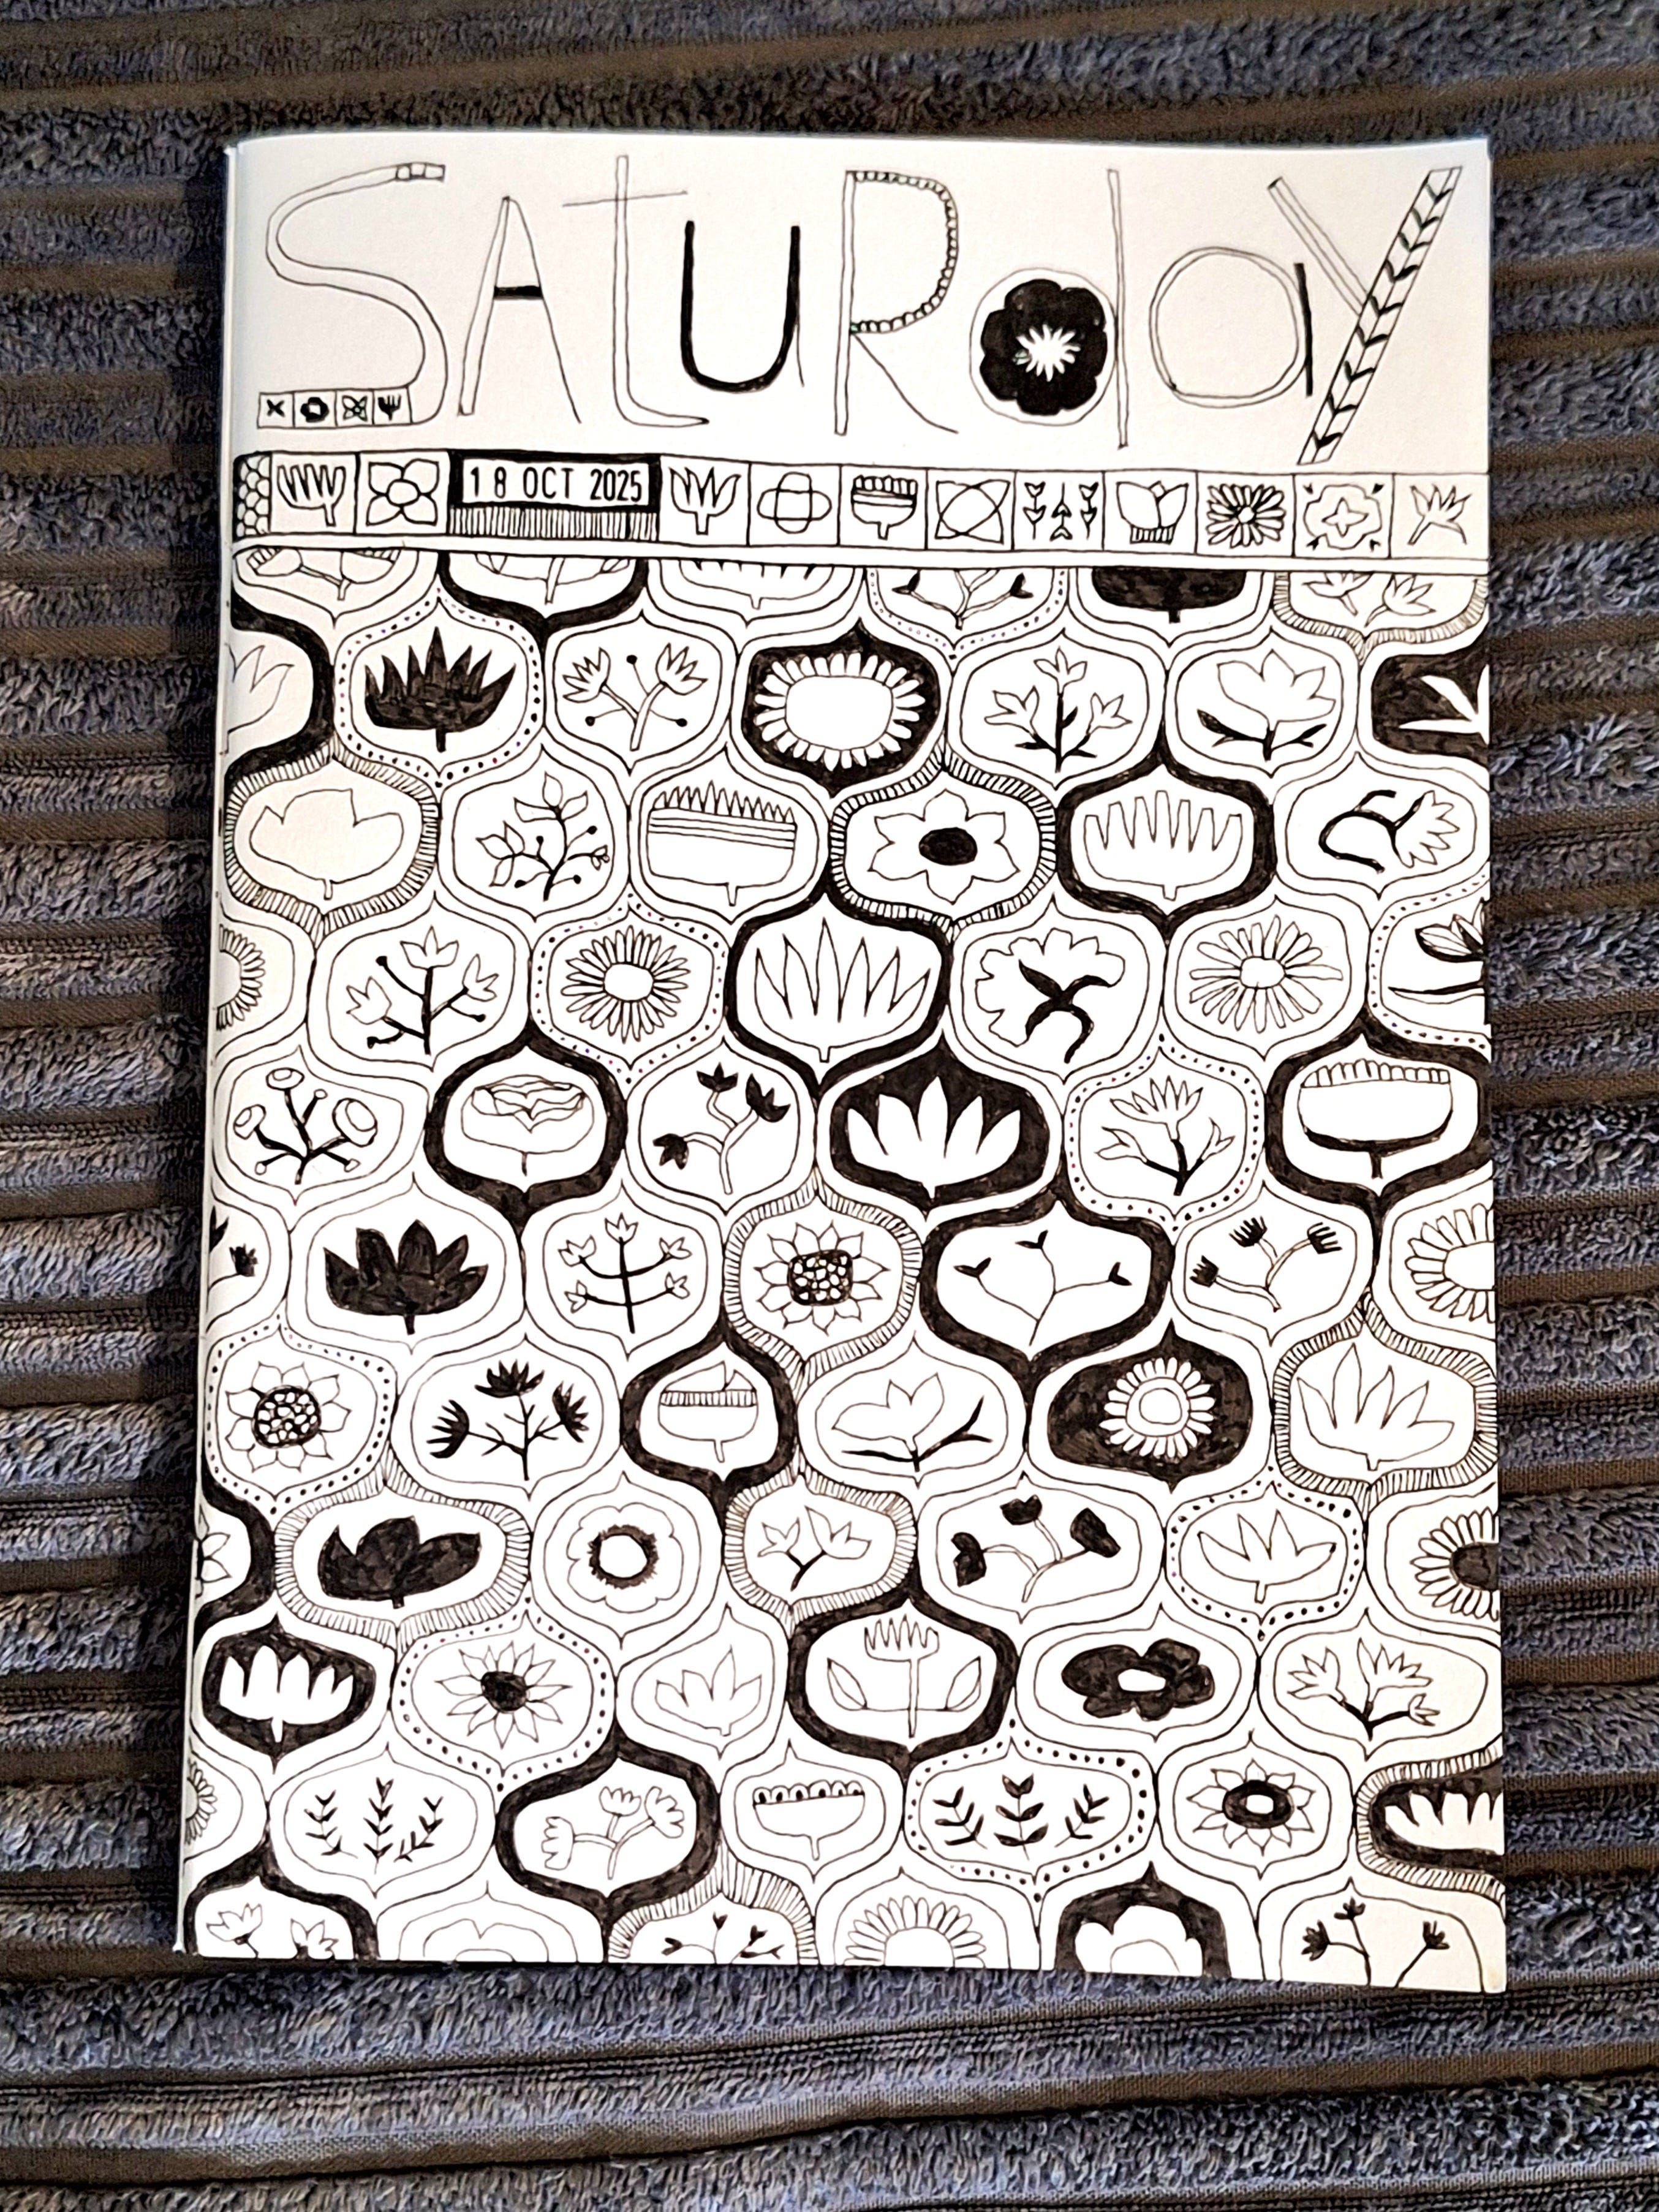 SAtURday
18 OCT 2025